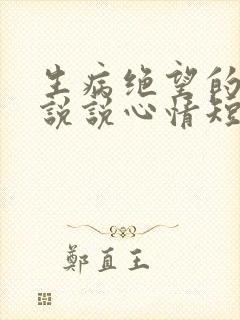 生病绝望的
说说心情短
鄭直王